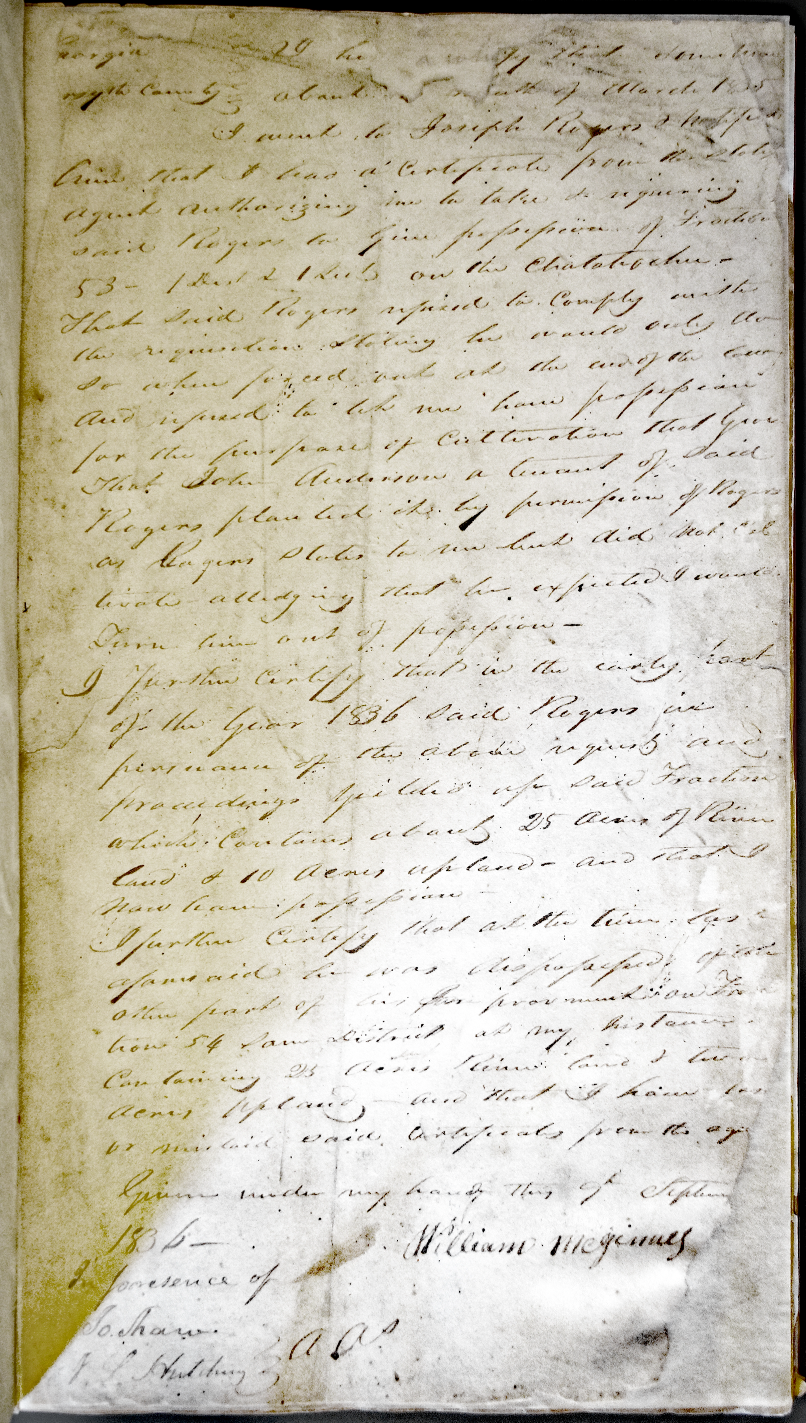 that
County about month of March 1835
I went to Joseph Rogers &
him that I has a Certificate from the State
agent authorizing me to take & requiring
said Rogers to Give possession of Fraction
53 - 1 Dist & 1 Sect on the Chatahochee -
That said Rogers refused to Comply with
the requisition Stating he would only do
so when forced out at the end of the law
And refused to let me have possession
for the purpose of Cultivation that year
That John Anderson a tenant of Said
Rogers planted it by permission of Rogers
as Rogers States to me but did not Cul
tivate alledging that he expected I would
Turn him out of possession -
I further Certify that in the early part
of the Year 1836 said Rogers in
persuance of the above request and
proceedings Yielded up said Fraction
which Contains about 25 Acres of River
land & 10 Acres upland - and that I
now have possession -
I further Certify that at the time
aforesaid he was dispossessed of the
other part of his Improvment on Frac
tion 54 same District at my instance
Containing 25 Acres River land & two
Acres upland - and that I have
or mislaid said Certificate from the
Given under my hand this 9th
1836 -
William McGinnes
In presence of
Jo. Shaw